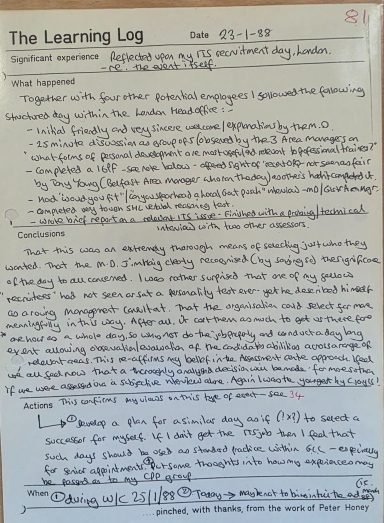 81
The Learning Log Date 23-1-88
Significant experience Reflected upon my ITS recruitment day, London.
- re. the event itself.
What happened
Together with four other potential employees I followed the following
structured day within the London Head office :-
- Initial friendly and very sincere welcome/explanations by the M.D.
- 25 minute discussion as group of 5 (observed by the 3 Area managers on
"what forms of personal development are most
- Completed a - see note below - offered right of not seen as fair
by Tony Young (Belfast Area manager who on the day
- Had "would you fit" / "could you spearhead a local push" interviews - MD/
- Completed very tough SHL verbal reasoning test.
- Wrote brief report on a relevant ITS issue - finished with a probing/technical
interview with two other assessors.
Conclusions
That this was an extremely thorough means of selecting just who they
wanted. That the M.D. clearly recognised (by saying so) the significance
of the day to all concerned. I was rather surprised that one of my fellow
'recruiters' had not seen or sat a personality test ever - yet he described himself
as a roving management consultant. That the organisation could select far more
meaningfully in this way. After all, it cost them as much to get us there for
an hour as a whole day, so why not do the job properly and conduct a day long
event allowing observation/evaluation of the candidates abilities across a range of
relevant areas. This re-affirms my belief in the Assessment centre approach. I feel
we all feel now that a thoroughly analysed decision will be made - far more so than
if we were assessed via a subjective interview alone. Again I was the youngest by 5 years!
Actions This confirms my views on this type of event - see 34
① Develop a plan for a similar day as if (!x?) to select a
successor for myself. If I don't get the ITS job then I feel that
such days should be used as standard practice within GCC - especially
for senior appointments ② Put some thoughts into how my experience may
be passed on to my CPD group
When ① during W/C 25/1/88 ② Today → may be not to
.... pinched, with thanks, from the work of Peter Honey